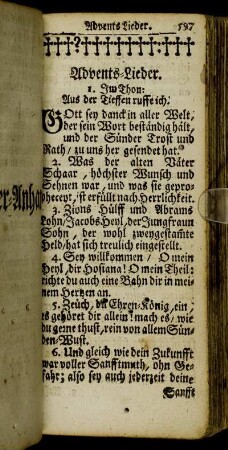 Advents Lieder. 597
Advents-Lieder.
1. Im Thon:
Aus der Tieffen ruffe ich.
GOtt sey danck in aller Welt,
der sein Wort beständig hält,
und der Sünder Trost und
Rath/ zu uns her gesendet hat.
2. Was der alten Väter
Schaar, höchster Wunsch und
Sehnen war, und was sie gepro-
pheceyt, ist erfüllt nach Herrlichkeit.
3. Zions Hülff und Abrams
Lohn/ Jacobs Heyl/ der Jungfraun
Sohn, der wohl zweygestamte
Held/ hat sich treulich eingestellt.
4. Sey willkommen/ O mein
Heyl, dir Hosiana! O mein Theil:
richte du auch eine Bahn dir in mei-
nem Hertzen an.
5. Zeuch, du Ehren-König, ein;
es gehöret dir allein! mach es/ wie
du gerne thust, rein von allem Sün-
den-Wust.
6. Und gleich wie dein Zukunfft
war voller Sanfftmuth, ohn Ge-
fahr; also sey auch jederzeit deine
Sanfft
er-Anha